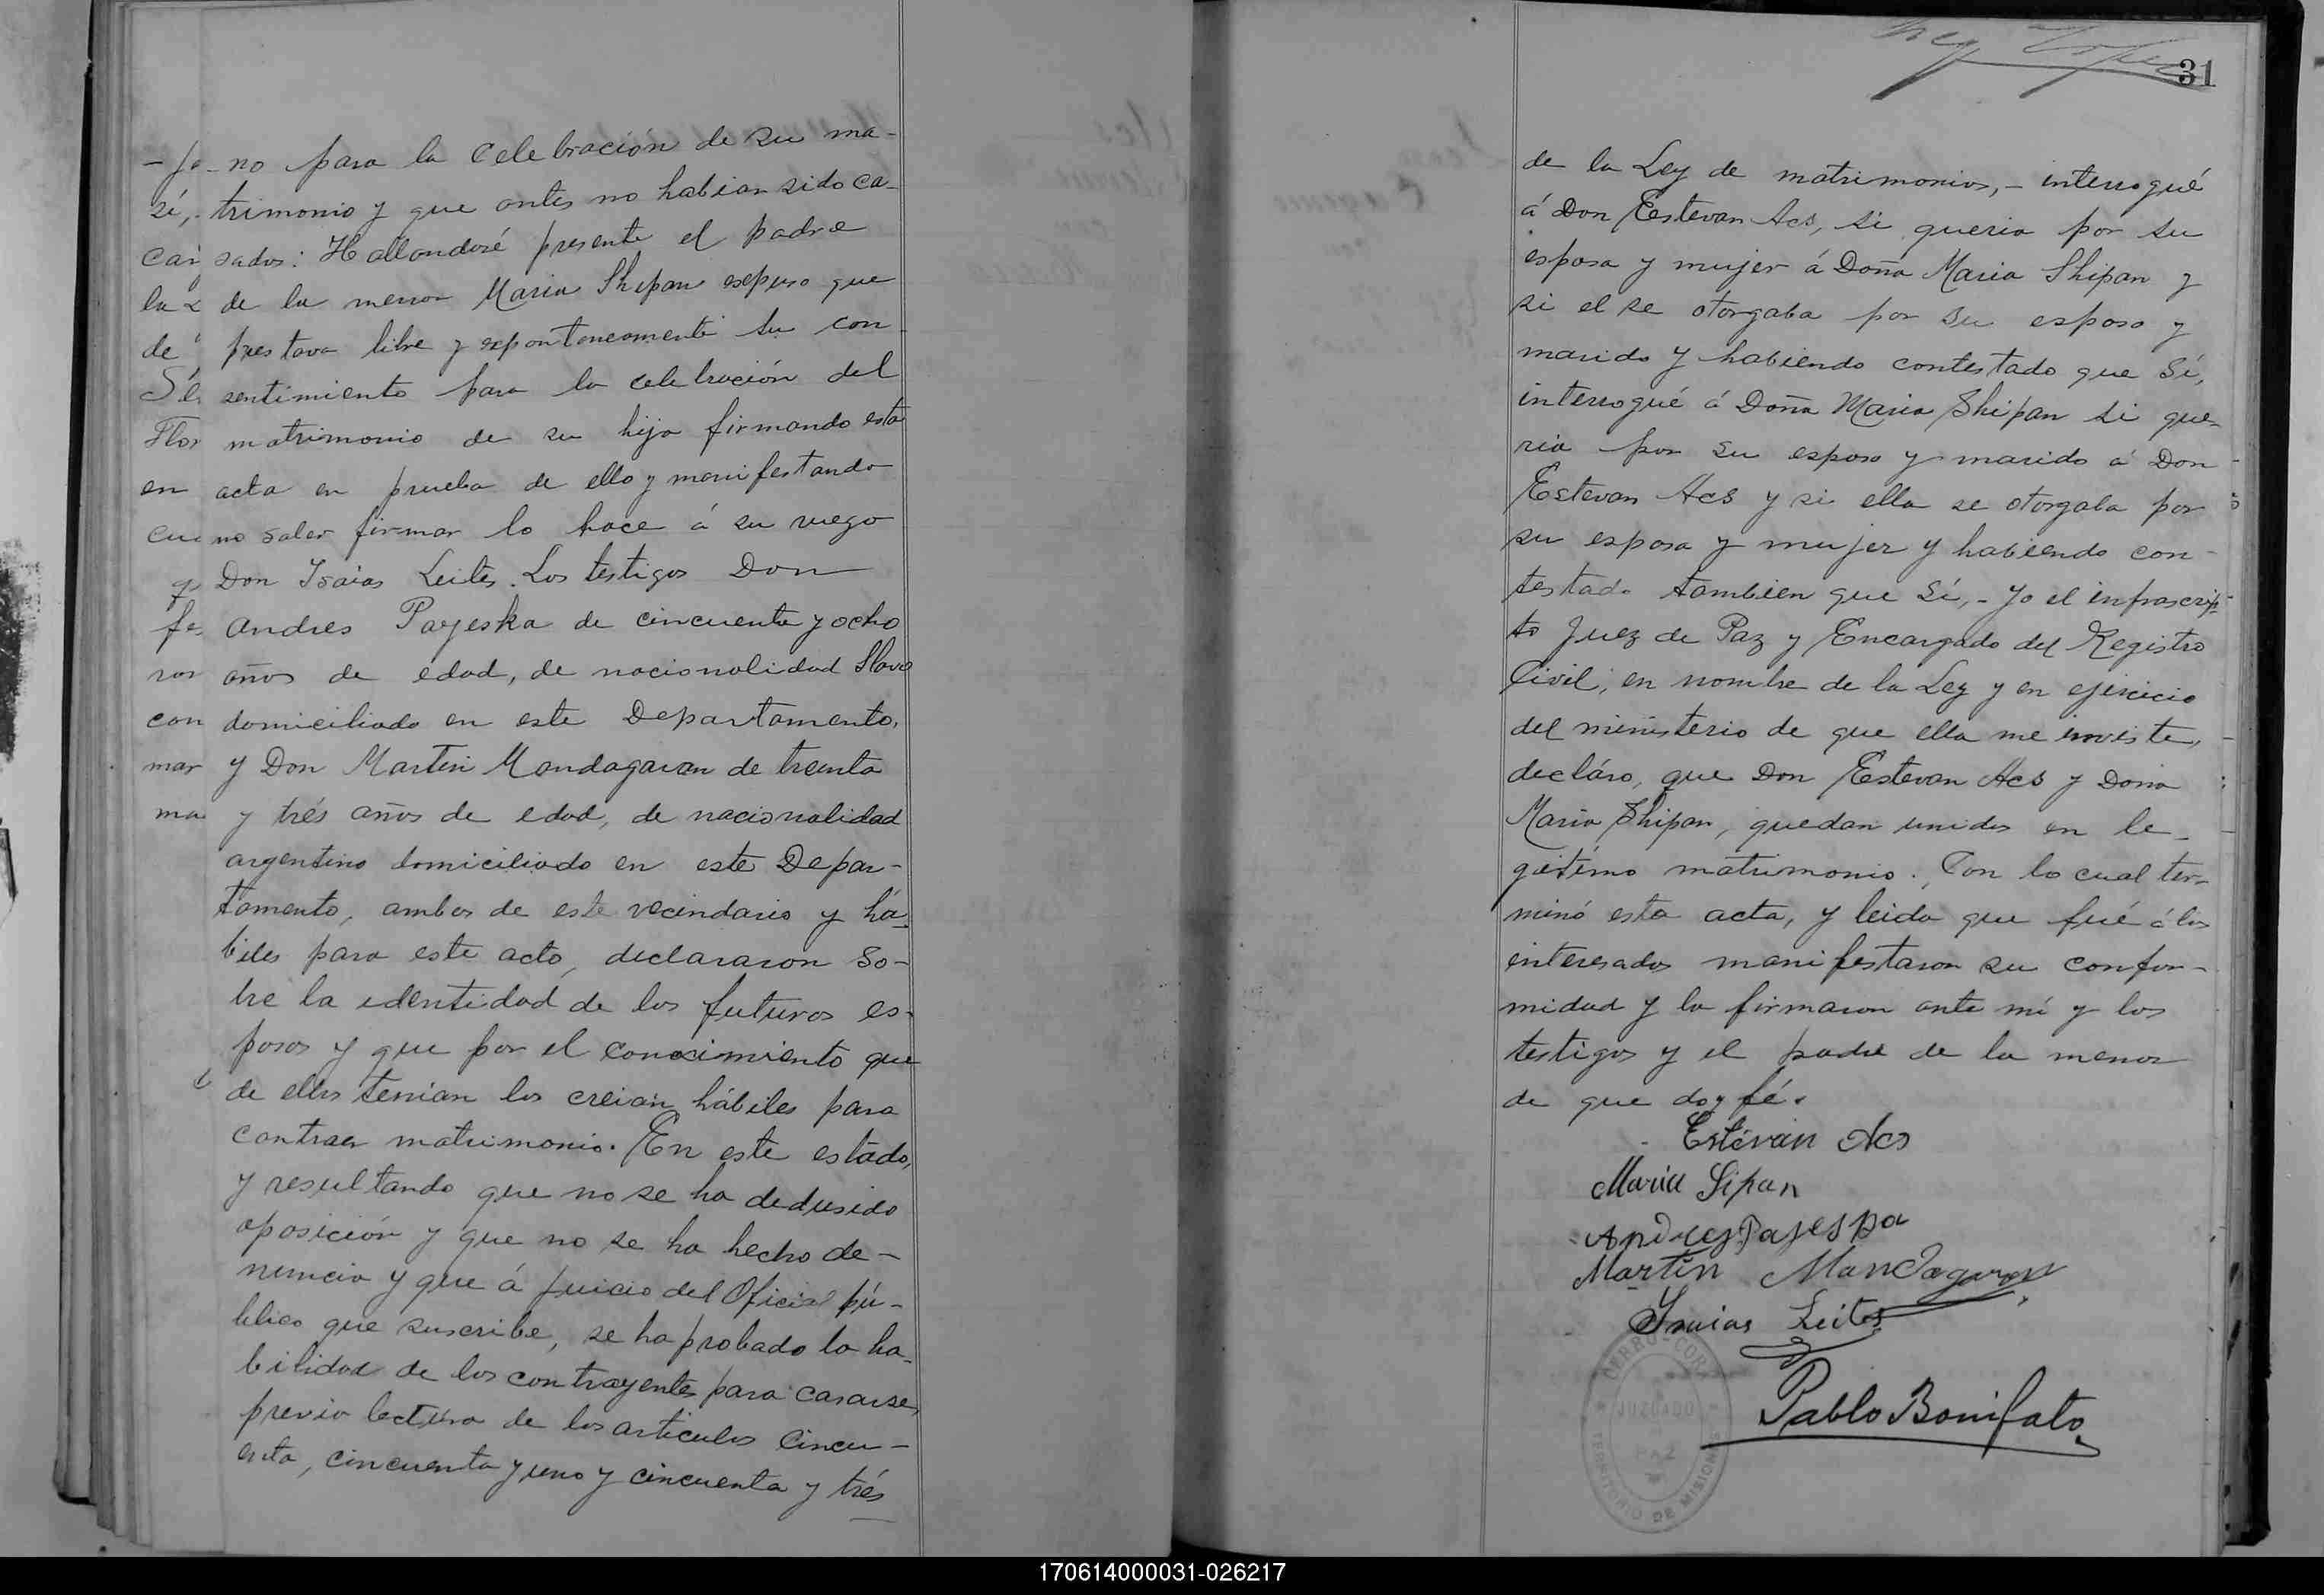 no para la celebración de su ma-
trimonio y que antes no habian sido ca-
sados: Hallandosé presente el padre
de la menor Maria Shipan expuso que
prestava libre y expontoneamente su con
sentimiento para la celebración del
matrimonio de su hija firmando esta
acta en prueba de ello y manifestando
no saber firmar lo hace á su ruego
Don Isaias Leites. Los testigos Don
Andres Payeska de cincuenta y ocho
años de edad, de nacionalidad Slavo
domiciliado en este Departamento,
y Don Martin Mandagaran de treinta
y trés años de edad, de nacionalidad
argentino domiciliado en este Depar-
tamento, ambos de este vecindario y há-
biles para este acto, declararon so-
bre la identidad de los futuros es-
posos y que por el conocimiento que
de ellos tenian los creian hábiles para
contraer matrimonio. En este estado,
y resultando que no se ha dedusido
oposición y que no se ha hecho de-
nuncia y que á juicio del Oficial pú-
blico que suscribe, se ha probado la ha-
bilidad de los contrayentes para casarse,
previa lectura de los articulos cincu-
enta, cincuenta y uno y cincuenta y trés
- Jo
sé,
la
de
Flor
en
con
mar
ma
31
de la Ley de matrimonios, - interrogué
á Don Estevan Acs, si queria por su
esposa y mujer á Doña Maria Shipan y
si el se otorgaba por su esposo y
marido y habiendo contestado que Sí,
interrogué á Doña Maria Shipan si que-
ria por su esposo y marido á Don
Estevan Acs y si ella se otorgaba por
su esposa y mujer y habiendo con-
testado tambien que Sí, - Yo el infrascrip-
to Juez de Paz y Encargado del Registro
Civil, en nombre de la Ley y en ejercicio
del ministerio de que ella me inviste,
decláro, que Don Estevan Acs y Doña
Maria Shipan, quedan unidos en le-
gitimo matrimonio. Con lo cual ter-
minó esta acta, y leida que fué á los
interesados manifestaron su confor-
midad y la firmaron ante mi y los
testigos y el padre de la menor
de que doy fé.
Estévan Acs
Maria Sipan
Andres Pajespa
Martin Mandagaran
Isaias Leites
Pablo Bonifato
CERRO-CORA
JUZGADO
PAZ
TERRITORIO DE MISIONES
170614000031-026217